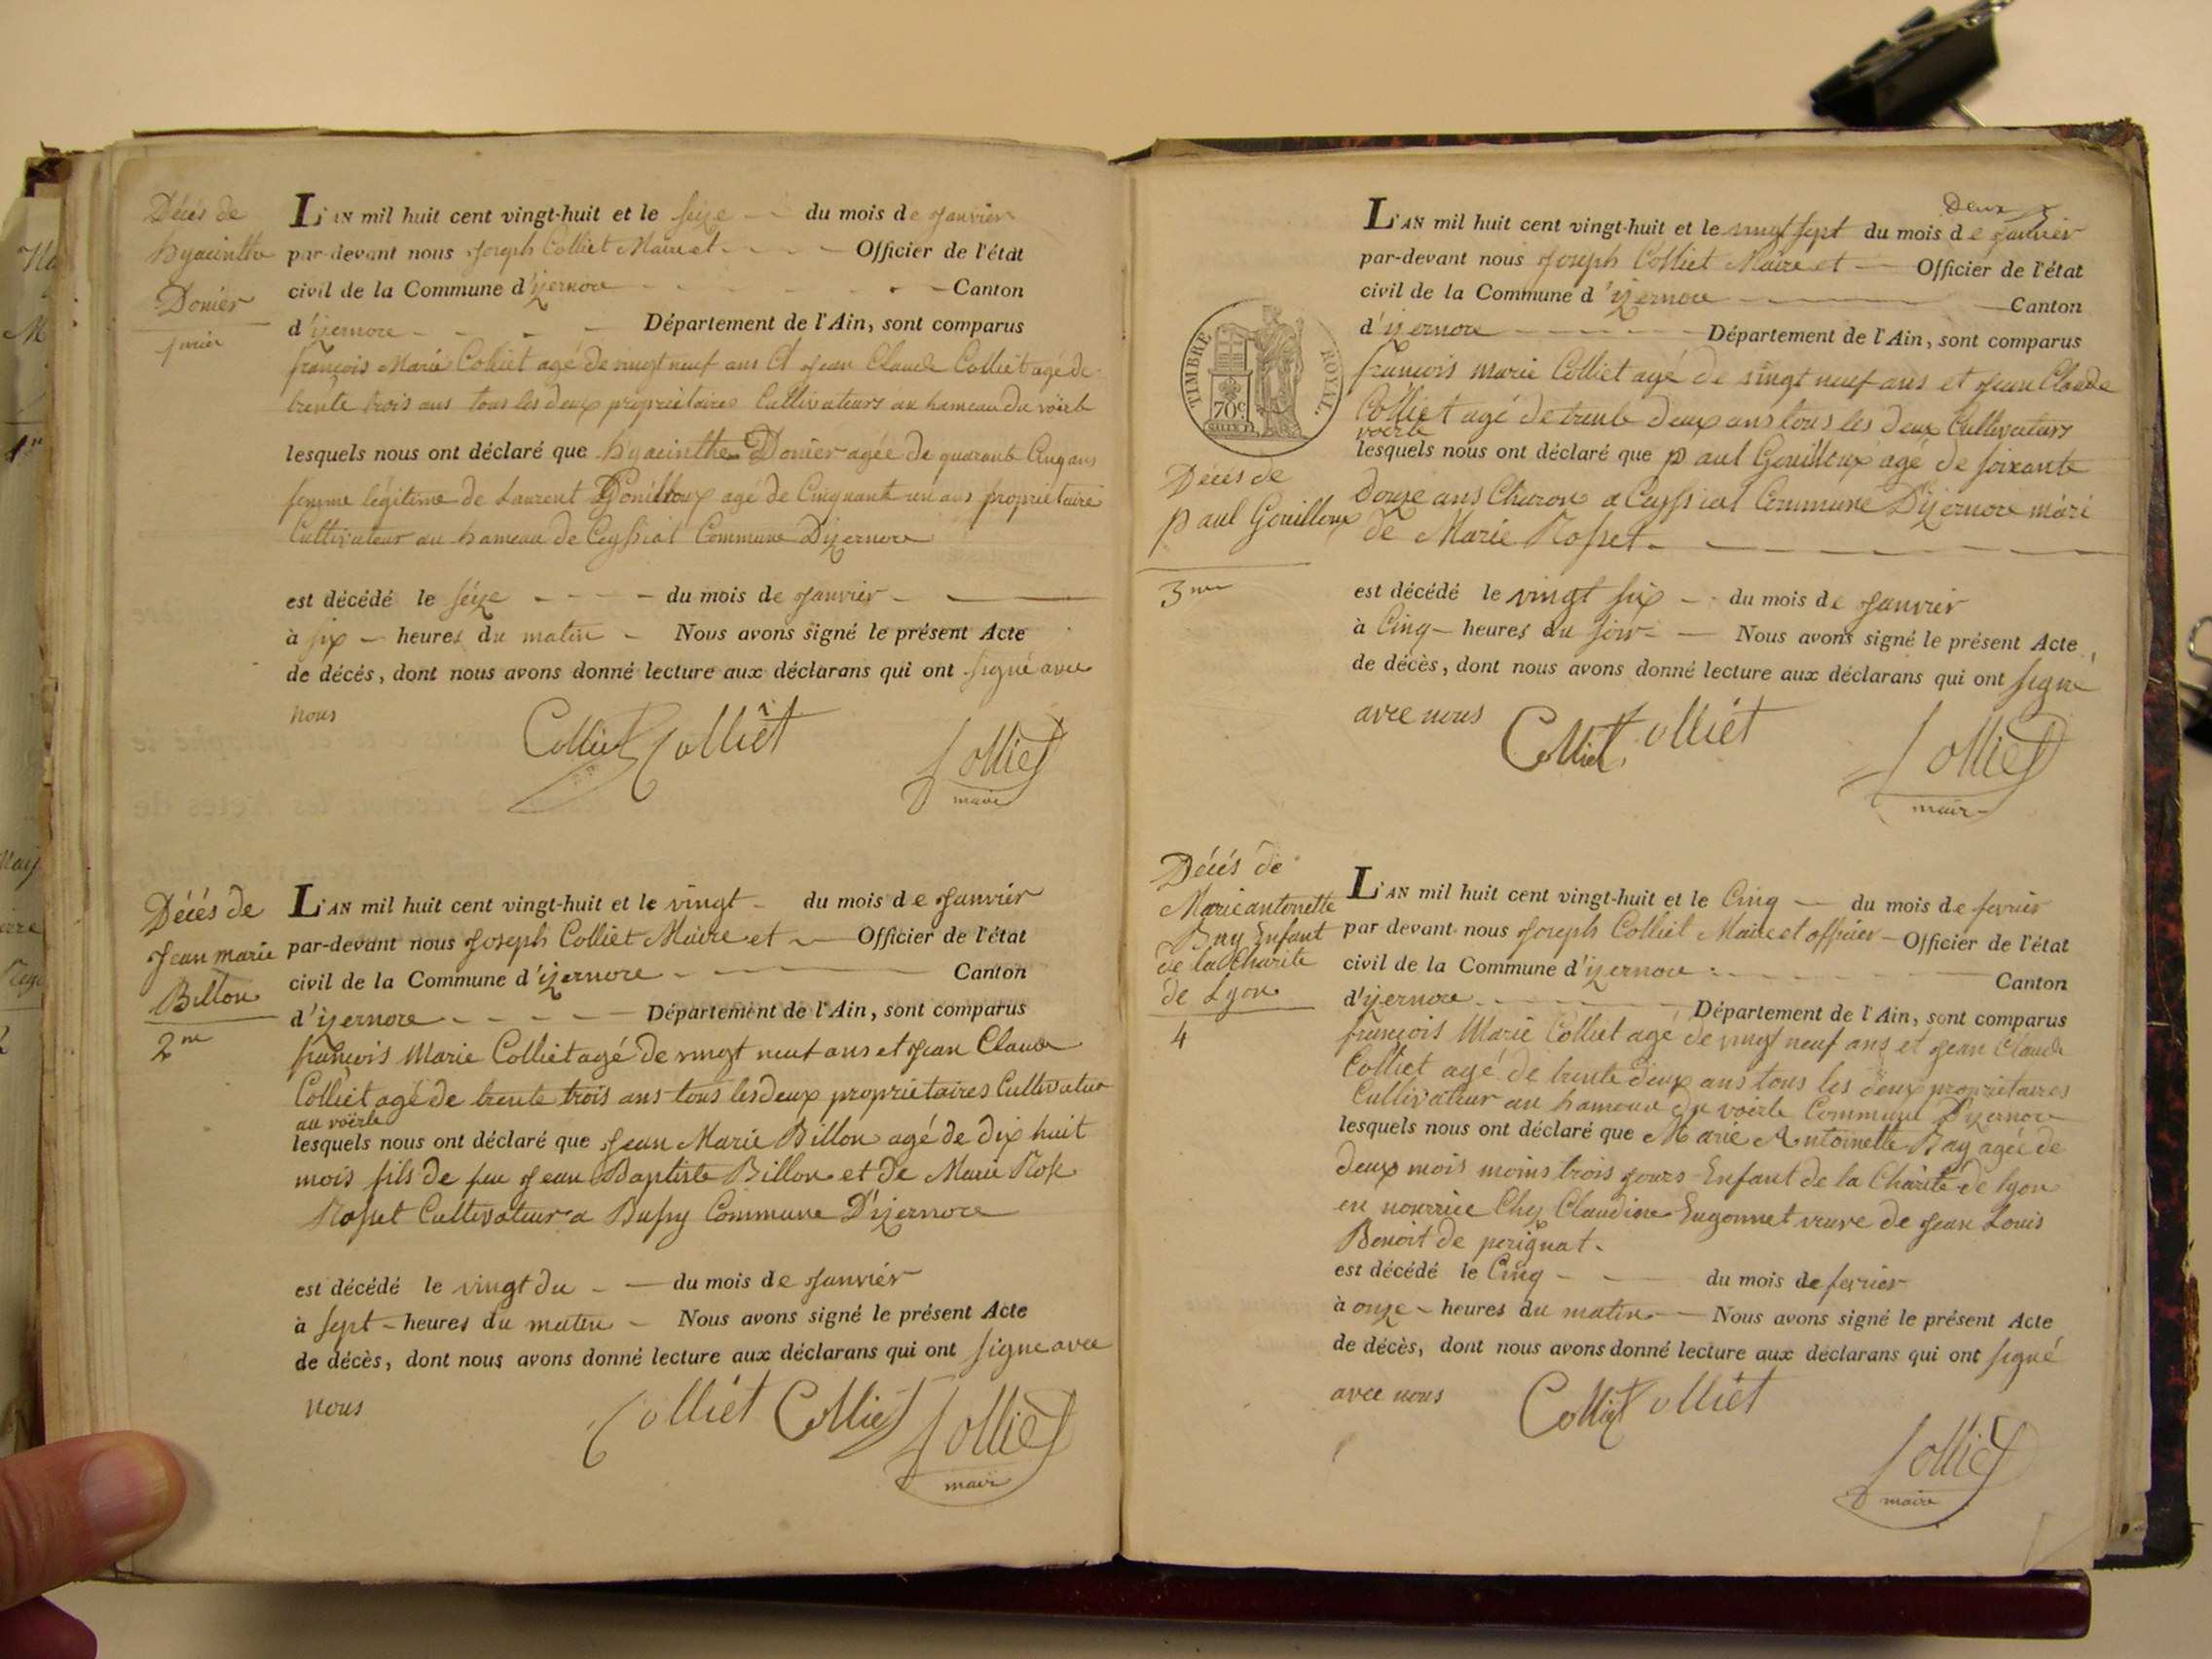 Décès de
hyacinthe
Donier
1er
L'AN mil huit cent vingt-huit et le seize du mois de Janvier
par-devant nous Joseph Colliet Maire et Officier de l'état
civil de la Commune d'izernore Canton
d'izernore Département de l'Ain, sont comparus
françois Marie Colliet agé de vingt neuf ans et Jean Claude Colliet agé de
trente trois ans tous les deux propriétaires Cultivateurs au hameau du voërle
lesquels nous ont déclaré que hyacinthe Donier agée de quarante Cinq ans
femme légitime de Laurent Gouilloux agé de Cinquante un ans propriétaire
Cultivateur au hameau de Ceyssiat Commune Dizernore
est décédé le seize du mois de Janvier
à six heures du matin Nous avons signé le présent Acte
de décés, dont nous avons donné lecture aux déclarans qui ont signé avec
nous
Colliet Colliet Colliet
maire
Décés de
Jean marie
Billon
2me
L'AN mil huit cent vingt-huit et le vingt du mois de Janvier
par-devant nous Joseph Colliet Maire et Officier de l'état
civil de la Commune d'izernore Canton
d'izernore Département de l'Ain, sont comparus
françois Marie Colliet agé de vingt neuf ans et Jean Claude
Colliet agé de trente trois ans tous les deux propriétaires Cultivateur
au voërle
lesquels nous ont déclaré que Jean Marie Billon agé de Dix huit
mois fils de feu Jean Baptiste Billon et de Marie Rose
Rosset Cultivateur a Bussy Commune D'izernore
est décédé le vingt du du mois de Janvier
à sept heures du matin Nous avons signé le présent Acte
de décès, dont nous avons donné lecture aux déclarans qui ont signe avec
nous
Colliet Colliet Colliet
maire
TIMBRE ROYAL.
70c.
Décès de
paul Gouilloux
3me
Deux
L'AN mil huit cent vingt-huit et le vingt sept du mois de Janvier
par-devant nous Joseph Colliet Maire et Officier de l'état
civil de la Commune d'izernore Canton
d'izernore Département de l'Ain, sont comparus
françois marie Colliet agé de vingt neuf ans et Jean Claude
Colliet agé de trente deux ans tous les deux Cultivateurs
voërle
lesquels nous ont déclaré que paul Gouilloux agé de soixante
douze ans Charon a Ceyssiat Commune Dizernore mari
de Marie Rosset
est décédé le vingt six du mois de Janvier
à Cinq heures du soir Nous avons signé le présent Acte
de décès, dont nous avons donné lecture aux déclarans qui ont signé
avec nous
Colliet Colliet Colliet
maire
Décés de
Marie antoinette
Bay Enfant
de la Charité
de Lyon
4
L'AN mil huit cent vingt-huit et le Cinq du mois de fevrier
par devant nous Joseph Colliet Maire et officier Officier de l'état
civil de la Commune d'izernore Canton
d'izernore Département de l'Ain, sont comparus
françois Marie Colliet agé de vingt neuf ans et Jean Claude
Colliet agé de trente deux ans tous les deux propriétaires
Cultivateur au hameau du voërle Commune D'izernore
lesquels nous ont déclaré que Marie Antoinette Bay agée de
deux mois moins trois jours Enfant de la Charité de lyon
en nourrice Chez Claudine Eugonnet veuve de Jean Louis
Benoit de perignat.
est décédé le Cinq du mois de fevrier
à onze heures du matin Nous avons signé le présent Acte
de décès, dont nous avons donné lecture aux déclarans qui ont signé
avec nous
Colliet Colliet
Colliet
maire